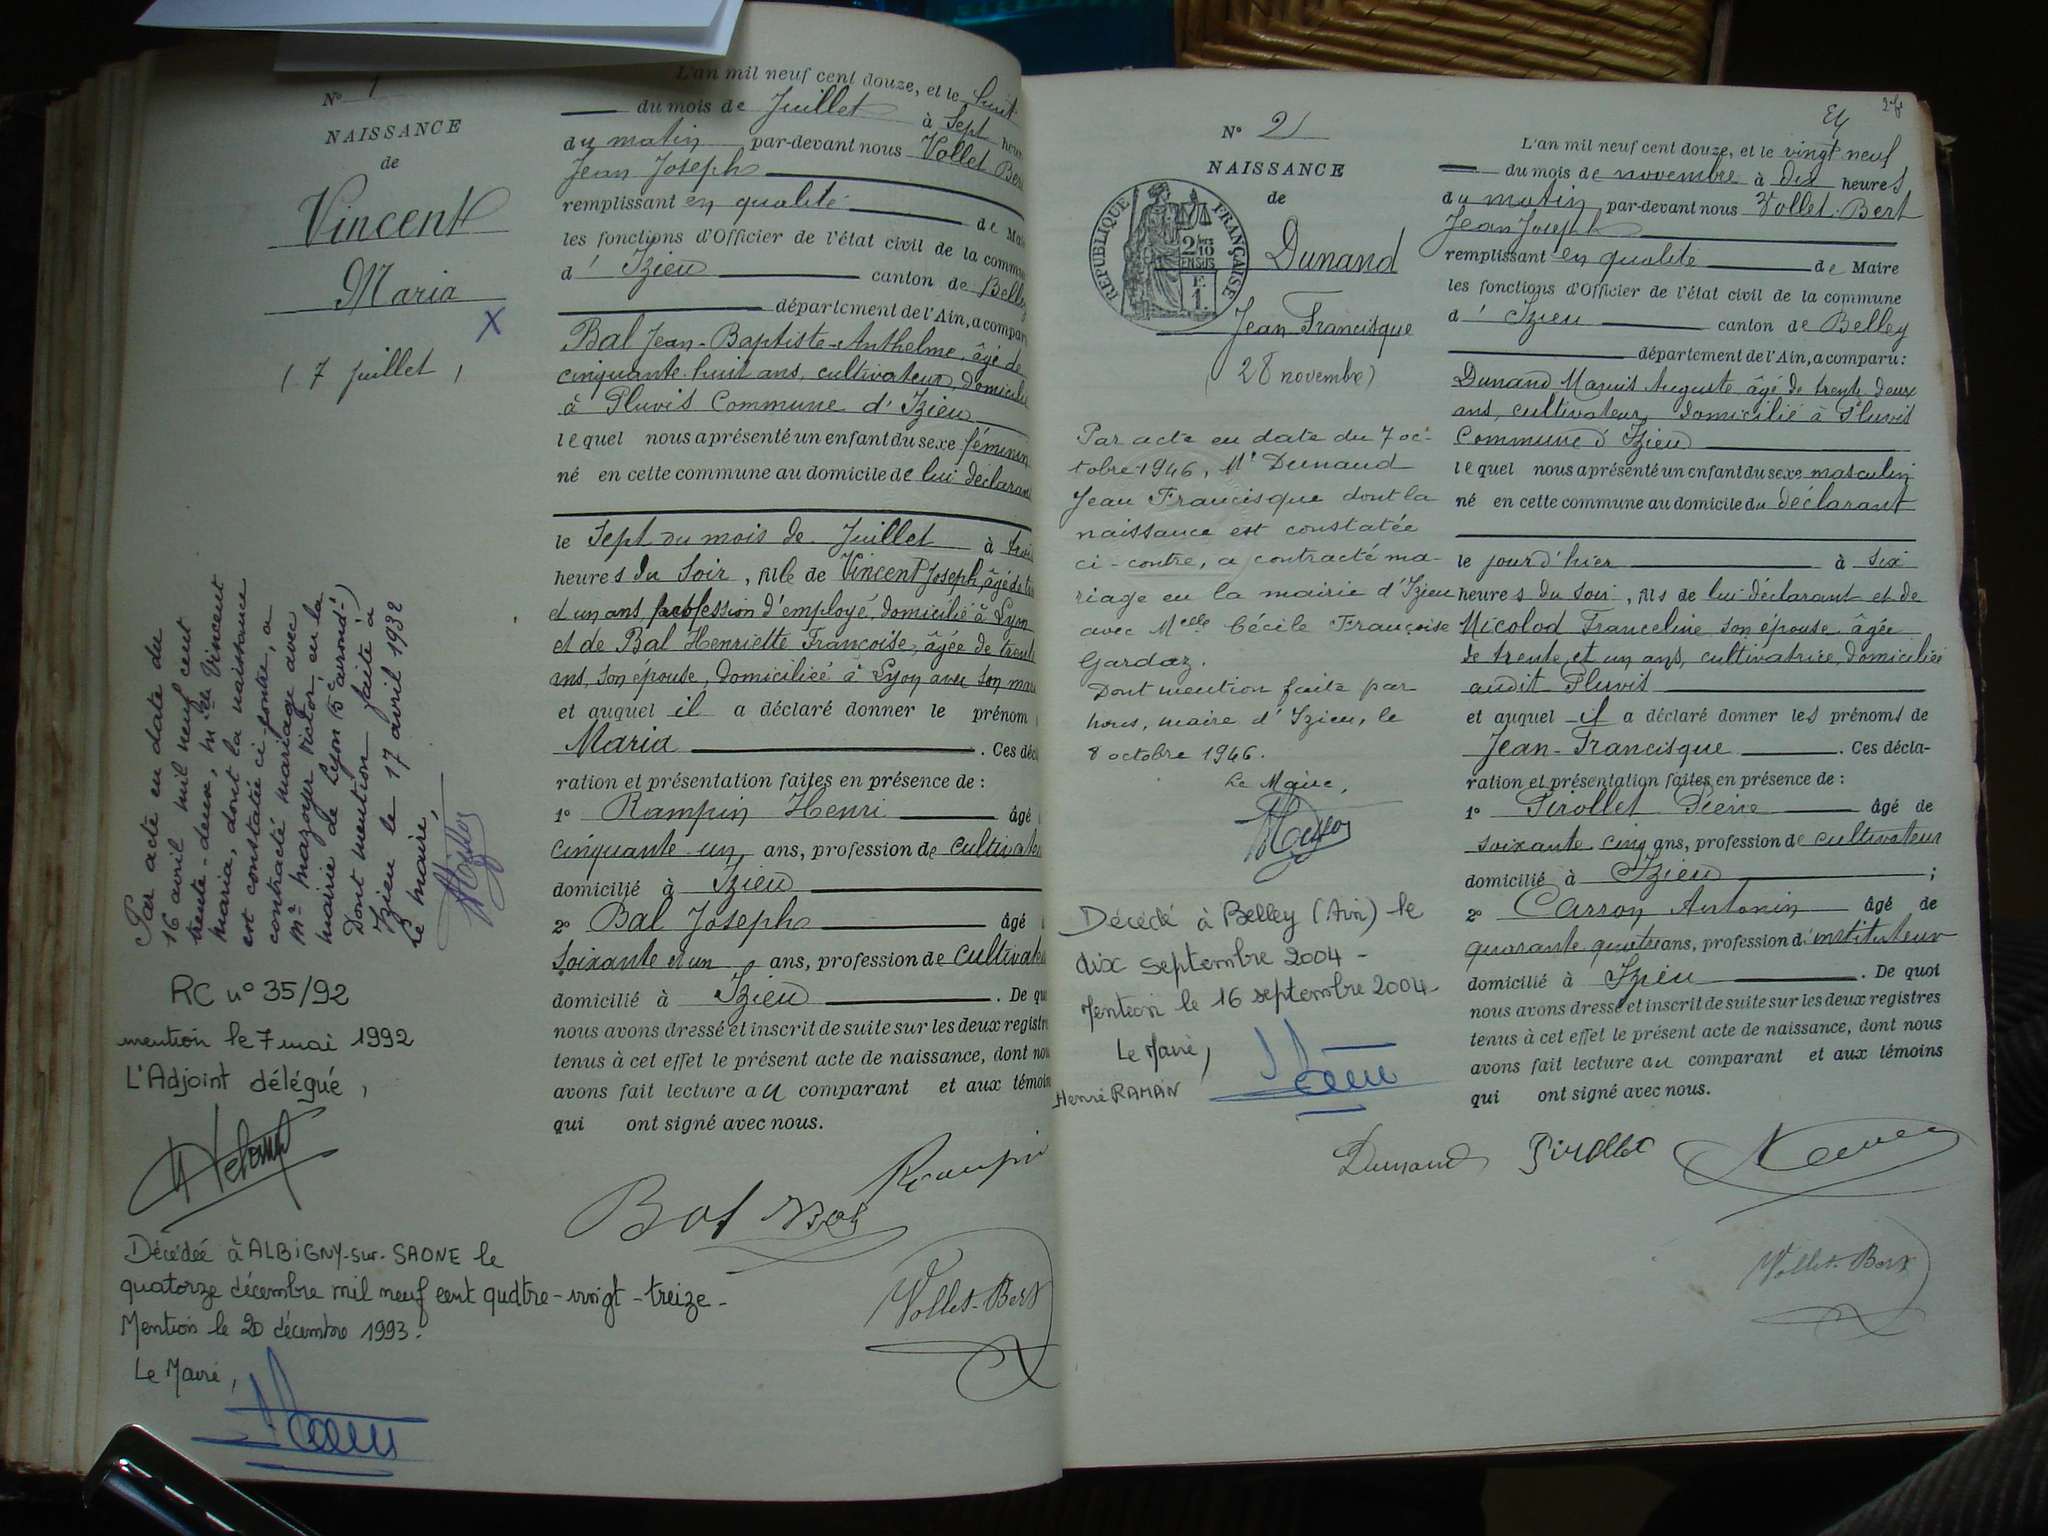 N° 1
NAISSANCE
de
Vincent
Maria
X
( 7 juillet )
Par acte en date du
16 avril mil neuf cent
trente-deux, Mlle Vincent
Maria, dont la naissance
est constatée ci-contre, a
contracté mariage avec
Mr Mazoyer Victor, en la
mairie de Lyon (5e arrondt)
Dont mention faite à
Izieu le 17 avril 1932
Le maire,
RC n° 35/92
mention le 7 mai 1992
L'Adjoint délégué,
Décédée à ALBIGNY-sur-SAONE le
quatorze décembre mil neuf cent quatre-vingt-treize-
Mention le 20 décembre 1993.
Le Maire,
L'an mil neuf cent douze, et le huit
du mois de Juillet à Sept heu
du matin par-devant nous Vollet Be
Jean Joseph
remplissant en qualité de Ma
les fonctions d'Officier de l'état civil de la commu
d' Izieu canton de Belle
département de l'Ain, a compar
Bal Jean-Baptiste-Anthelme, âgé de
cinquante huit ans, cultivateur, domicilié
à Pluvis Commune d'Izieu
lequel nous a présenté un enfant du sexe féminin
né en cette commune au domicile de lui déclaran
le Sept du mois de Juillet à trois
heures du Soir, fille de Vincent Joseph, âgé de tre
et un ans, profession d'employé, domicilié à Lyon
et de Bal Henriette Françoise, âgée de trente
ans, son épouse, domiciliée à Lyon avec son mari
et auquel il a déclaré donner le prénom
Maria . Ces décl
ration et présentation faites en présence de :
1° Rampin Henri âgé
cinquante un ans, profession de cultivate
domicilié à Izieu
2° Bal Joseph âgé
Soixante et un ans, profession de cultivate
domicilié à Izieu . De quo
nous avons dressé et inscrit de suite sur les deux registre
tenus à cet effet le présent acte de naissance, dont nou
avons fait lecture au comparant et aux témoin
qui ont signé avec nous.
Rampin
Bal Bal
Vollet-Bert
N° 2
NAISSANCE
de
RÉPUBLIQUE FRANÇAISE
2/10
EN SUS
F.
1
Dunand
Jean Francisque
(28 novembre)
Par acte en date du 7 oc-
tobre 1946, Mr Dunand
Jean Francisque dont la
naissance est constatée
ci-contre, a contracté ma-
riage en la mairie d'Izieu
avec Melle Cécile Françoise
Gardaz.
Dont mention faite par
nous, maire d'Izieu, le
8 octobre 1946.
Le Maire,
Décédé à Belley (Ain) le
dix septembre 2004 -
Mention le 16 septembre 2004-
Le Maire,
Henri RAMAN
L'an mil neuf cent douze, et le vingt neuf
du mois de novembre à dix heures
du matin par-devant nous Vollet-Bert
Jean Joseph
remplissant en qualité de Maire
les fonctions d'Officier de l'état civil de la commune
d' Izieu canton de Belley
département de l'Ain, a comparu :
Dunand Marius Auguste âgé de trente deux
ans, cultivateur, domicilié à Pluvis
Commune d'Izieu
lequel nous a présenté un enfant du sexe masculin
né en cette commune au domicile du déclarant
le jour d'hier à six
heures du Soir, fils de lui déclarant et de
Nicolod Franceline son épouse âgée
de trente et un ans, cultivatrice, domiciliée
audit Pluvis
et auquel il a déclaré donner les prénoms de
Jean-Francisque . Ces décla-
ration et présentation faites en présence de :
1° Pirollet Pierre âgé de
soixante cinq ans, profession de cultivateur
domicilié à Izieu ;
2° Carron Antonin âgé de
quarante quatre ans, profession d'instituteur
domicilié à Izieu . De quoi
nous avons dressé et inscrit de suite sur les deux registres
tenus à cet effet le présent acte de naissance, dont nous
avons fait lecture au comparant et aux témoins
qui ont signé avec nous.
Dunand Pirollet
Vollet-Bert